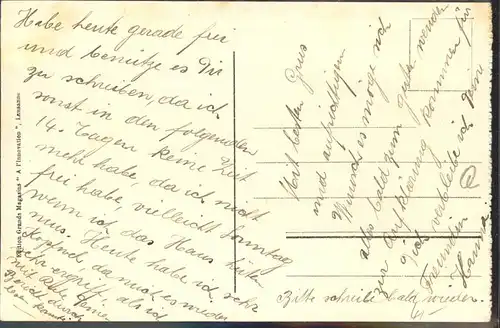 Habe heute gerade frei
und benütze es Dir
zu schreiben, da ich
sonst in den folgenden
14. Tagen keine Zeit
mehr habe, da ich nicht
frei habe, vielleicht Sonntag
wenn ich das Haus hüten
mus. Heute habe ich sehr
da muss es wieder
als ich
Mit besten Grus
und aufrichtigen
Wunsch es möge sich
alles bald zum guten wenden
zur Aufklärung kommen für
Dich verbleibe ich Dein
Freundin
Hanna
Bitte schreibe bald wieder.
Edition Grands Magasins "A l'Innovation", Lausanne